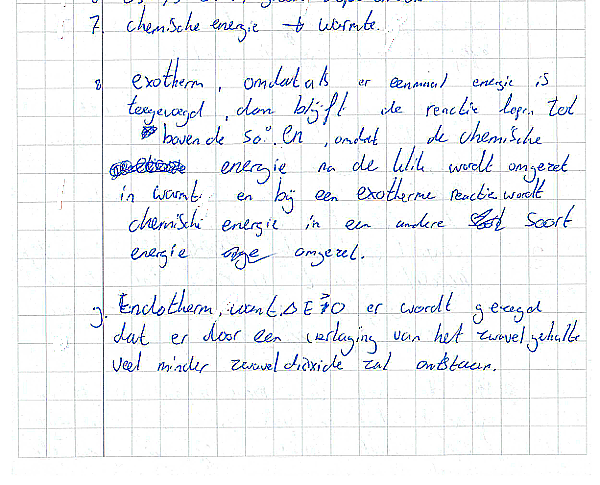 7. chemische energie → warmte.
8. exotherm, omdat als er eenmaal energie is
toegevoegd, dan blijft de reactie lopen tot
boven de 50°. En, omdat de chemische
energie na de klik wordt omgezet
in warmt. en bij een exotherme reactie wordt
chemische energie in een andere soort
energie omgezet.
9. Endotherm, want ΔE > 0 er wordt gezegd
dat er door een verlaging van het zwavelgehalte
veel minder zwaveldioxide zal ontstaan.